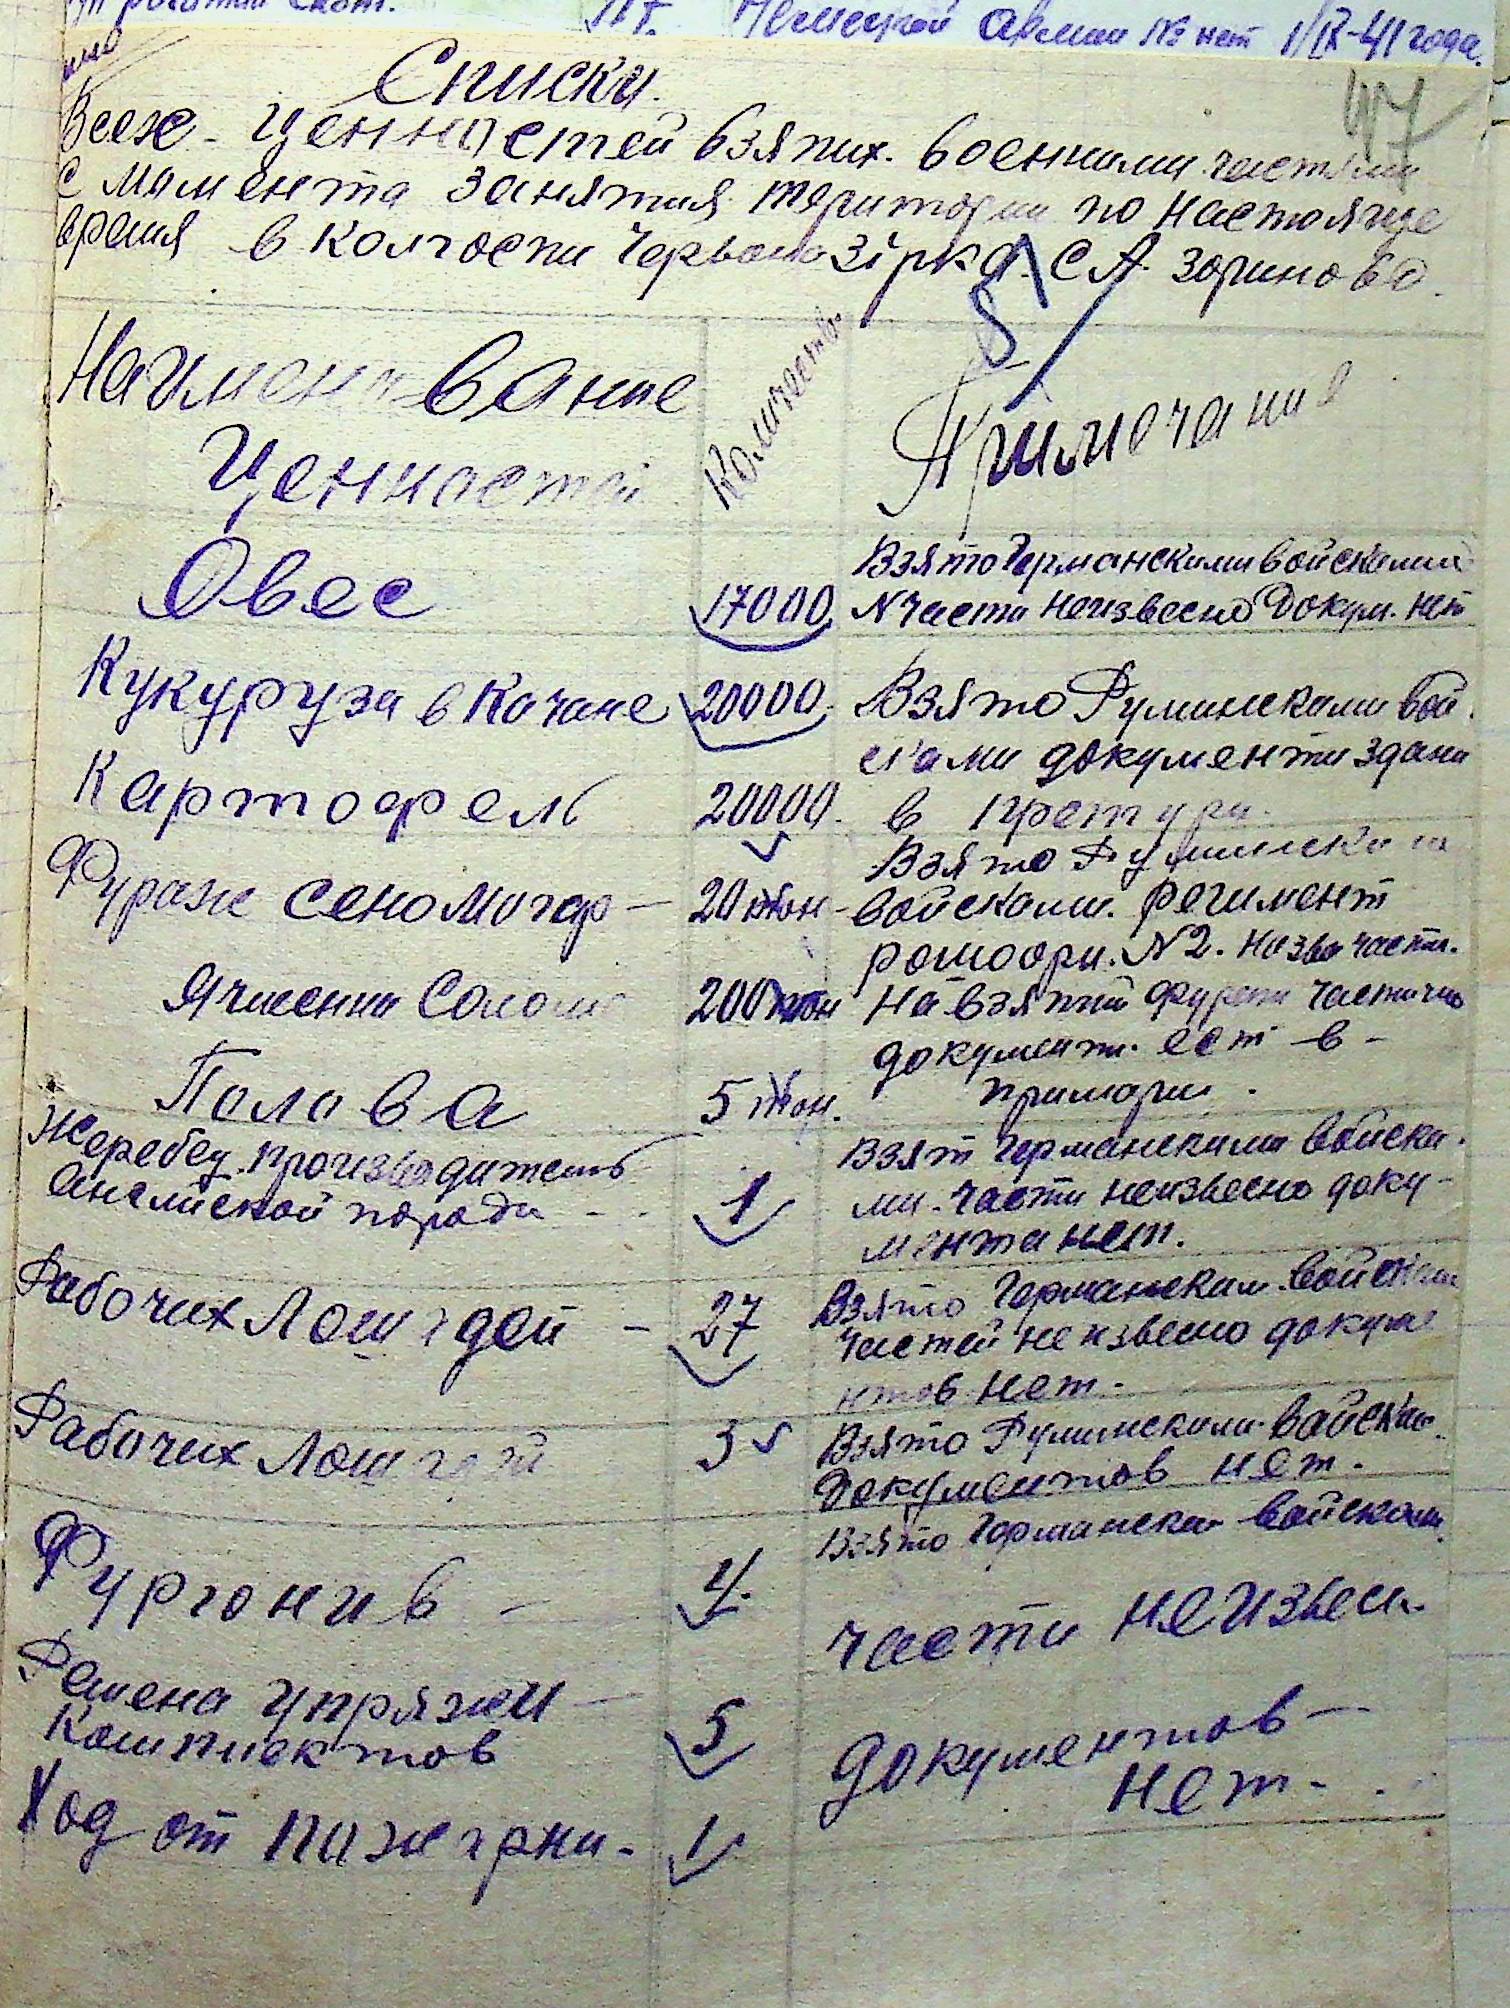 рогатий скот.
Немецкой армии № нет 1/IX-41 года.
47
Списки.
Всех - ценностей взятих. военними частями
с мамента занятия територии по настояще
время в колгоспи Червона Зірка. С А. Зориново.
Наименование Ценностей
Количество.
Примечание
Овес
17000
Взято Германскими войсками
N части неизвесно Докум. нет
Кукуруза в Качане
20000
Взято Руминскими вой
сками документи здани
в претури.
Картофель
20000.
Взято Руминскими
Фураж сено могар —
20 тон -
войсками. регимент
рошиори. N 2. назва части.
Ячменна Солома
200 тон
На взятий фураж частично
документ. ест в -
примари.
Полова
5 тон.
Жеребец производитель
Английской породи - -
1
Взят Германскими войска.
ми. части неизвесно доку -
мента нет.
Рабочих Лошадей —
27
Взято Германским войсками
частей неизвесно докуме
нтов нет.
Рабочих Лошадей
3
Взято Руминскими войсками.
Документов нет.
Фургонив —
4.
Взято Германски войсками.
части неизвесн.
Ремена упряжи —
комплектов
5
документов —
нет - .
Ход от пожарни -
1